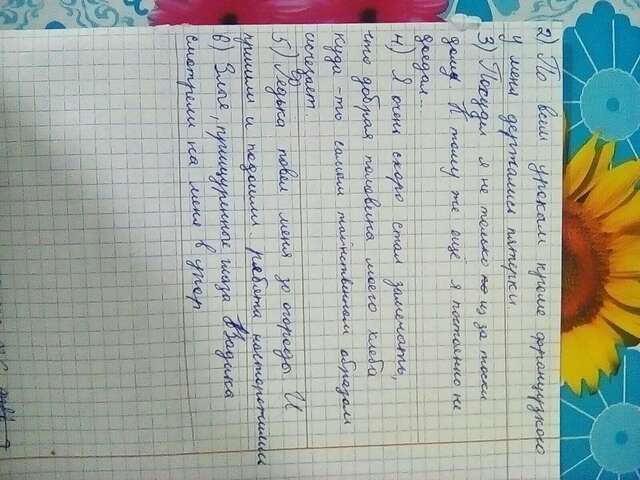 2) По всем урокам кроме французкого
у меня держались пятерки
3) Похудел я не только из за тоски
дому. К тому же ещё я постоянно не
доедал..
4) Я очень скоро стал замечать,
что добрая половина моего хлеба
куда-то самым таинственным образом
исчезает.
5) Федька повел меня за огороды. И
пришли и подошли. ребята насторотились
6) Злые, прищуренные глаза Вадика
смотрели на меня в упор